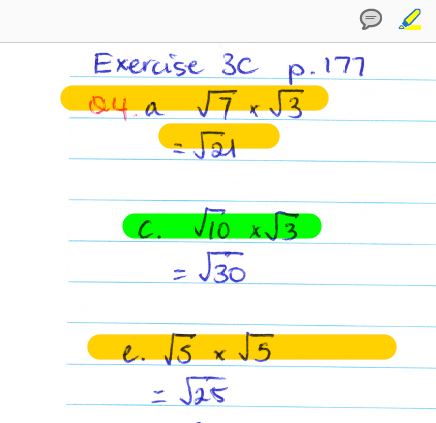 Exercise 3C p.177
Q4. a √7 × √3
= √21
c. √10 × √3
= √30
e. √5 × √5
= √25